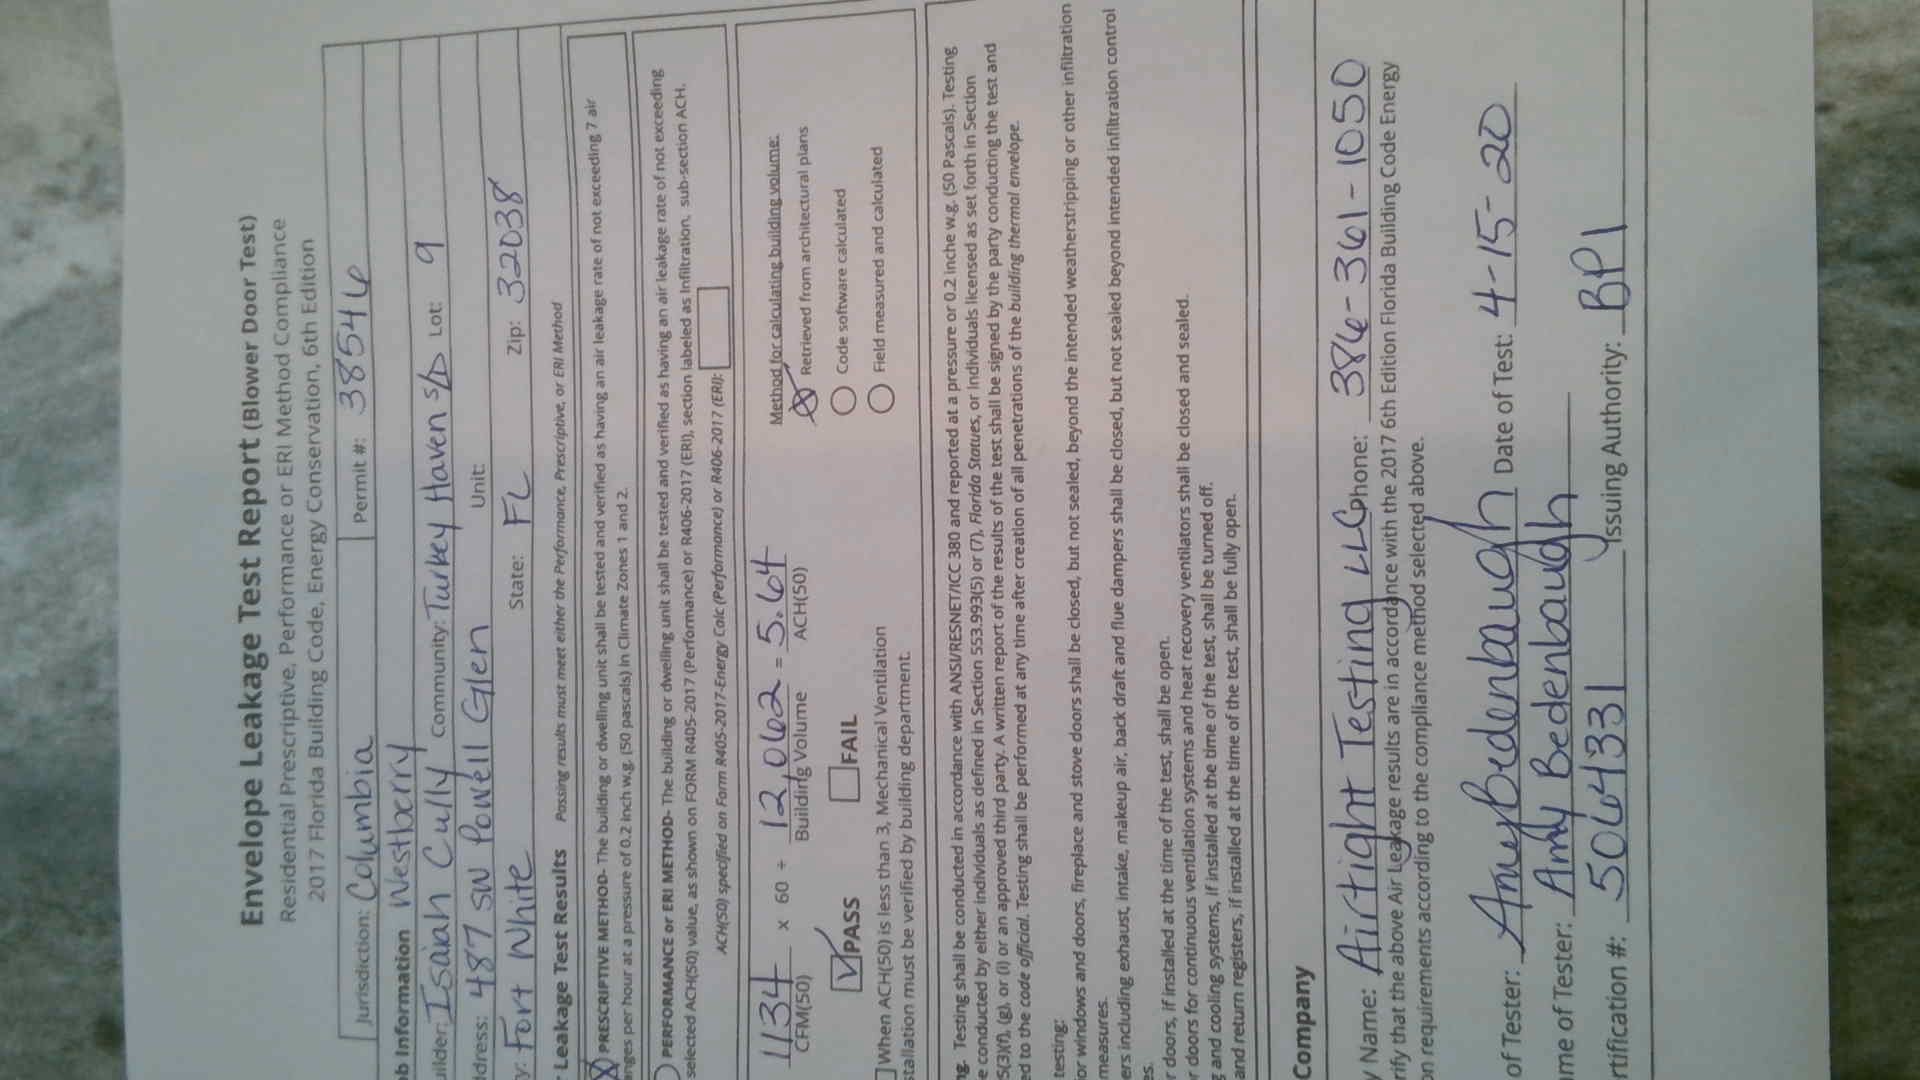 Envelope Leakage Test Report (Blower Door Test)
Residential Prescriptive, Performance or ERI Method Compliance
2017 Florida Building Code, Energy Conservation, 6th Edition
Jurisdiction: Columbia Permit #: 38546
ob Information Westberry
uilder: Isaiah Cully Community: Turkey Haven S/D Lot: 9
ddress: 487 SW Powell Glen Unit:
y: Fort White State: FL Zip: 32038
r Leakage Test Results Passing results must meet either the Performance, Prescriptive, or ERI Method
PRESCRIPTIVE METHOD- The building or dwelling unit shall be tested and verified as having an air leakage rate of not exceeding 7 air
anges per hour at a pressure of 0.2 inch w.g. (50 pascals) in Climate Zones 1 and 2.
PERFORMANCE or ERI METHOD- The building or dwelling unit shall be tested and verified as having an air leakage rate of not exceeding
selected ACH(50) value, as shown on FORM R405-2017 (Performance) or R406-2017 (ERI), section labeled as infiltration, sub-section ACH.
ACH(50) specified on Form R405-2017-Energy Calc (Performance) or R406-2017 (ERI):
1134 x 60 ÷ 12,062 = 5.64
CFM(50) Building Volume ACH(50)
PASS FAIL
When ACH(50) is less than 3, Mechanical Ventilation
stallation must be verified by building department.
Method for calculating building volume:
Retrieved from architectural plans
Code software calculated
Field measured and calculated
ng. Testing shall be conducted in accordance with ANSI/RESNET/ICC 380 and reported at a pressure or 0.2 inche w.g. (50 Pascals). Testing
e conducted by either individuals as defined in Section 553.993(5) or (7), Florida Statues, or individuals licensed as set forth in Section
5(3)(f), (g), or (i) or an approved third party. A written report of the results of the test shall be signed by the party conducting the test and
ed to the code official. Testing shall be performed at any time after creation of all penetrations of the building thermal envelope.
testing:
or windows and doors, fireplace and stove doors shall be closed, but not sealed, beyond the intended weatherstripping or other infiltration
measures.
ers including exhaust, intake, makeup air, back draft and flue dampers shall be closed, but not sealed beyond intended infiltration control
es.
r doors, if installed at the time of the test, shall be open.
r doors for continuous ventilation systems and heat recovery ventilators shall be closed and sealed.
g and cooling systems, if installed at the time of the test, shall be turned off.
and return registers, if installed at the time of the test, shall be fully open.
Company
y Name: Airtight Testing LLC Phone: 386-361-1050
rify that the above Air Leakage results are in accordance with the 2017 6th Edition Florida Building Code Energy
on requirements according to the compliance method selected above.
of Tester: Amy Bedenbaugh Date of Test: 4-15-20
me of Tester: Amy Bedenbaugh
rtification #: 5064331 Issuing Authority: BPI